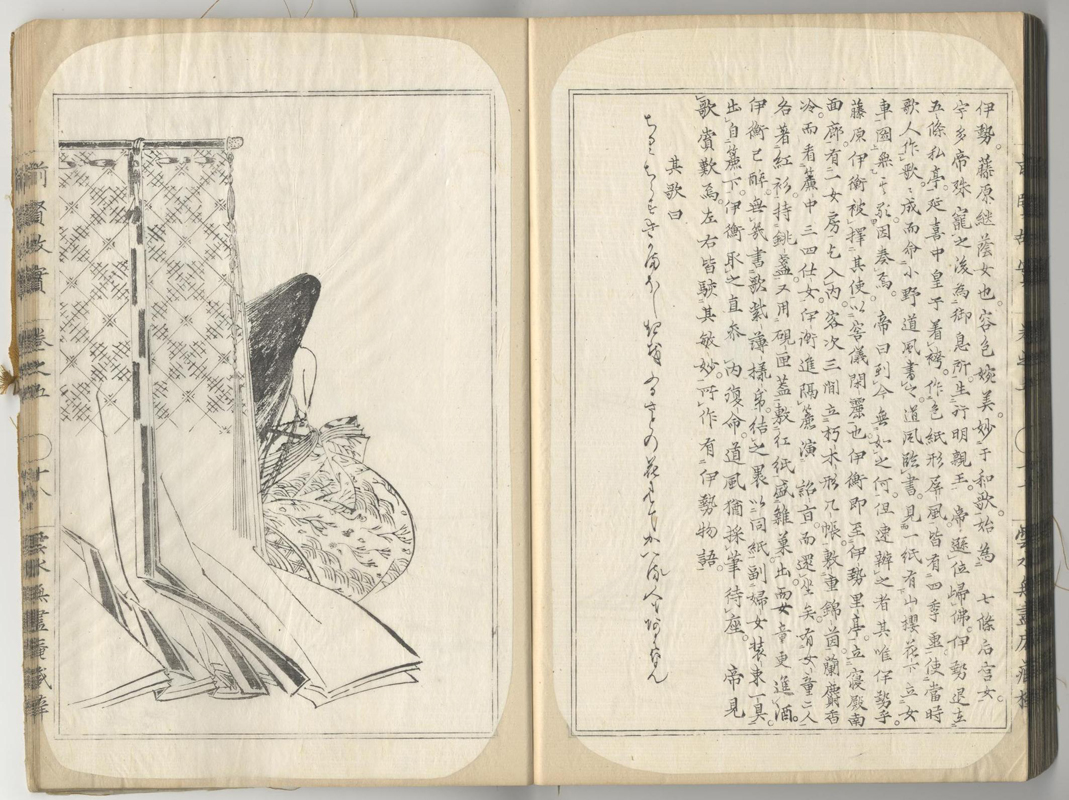 伊勢。藤原継蔭女也。容色婉美。妙于和歌。始為 七條后宮女。
宇多帝殊寵之。後為御息所。生行明親王。帝遜位帰佛。伊勢退在
五條私亭。延喜中皇子着袴。作色紙形屏風。皆有四季画。使當時
歌人作歌。成而命小野道風書之。道風臨書。見一紙有山櫻花下立女
車圖無其歌。因奏焉。帝曰到今無如之何。但速辦之者其唯伊勢乎。
藤原伊衡被擇其使。以容儀閑麗也。伊衡即至伊勢里亭。立寝殿南
面廊。有一女房乞入内。容次三間立朽木形几帳。敷重錦茵。蘭麝香
冷。而看簾中三四仕女。伊衡進隔簾演 詔旨。而還坐矣。有女童二人
各著紅衫。持銚盞。又用硯匣蓋敷紅紙盛雜菓出。而女童更進酒。
伊衡已酔。無幾書歌紫薄様。糸結之裹以同紙。副婦女装束一具
出自簾下。伊衡取之直参 内復命。道風猶採筆待座。 帝見
歌賞歎焉。左右皆駭其敏妙。所作有伊勢物語。
其歌曰
ちりちらすきかまほしきをふるさとの花見てかへる人もあはなん
前賢故實 巻之五 〇十八 雲水無盡庵藏梓